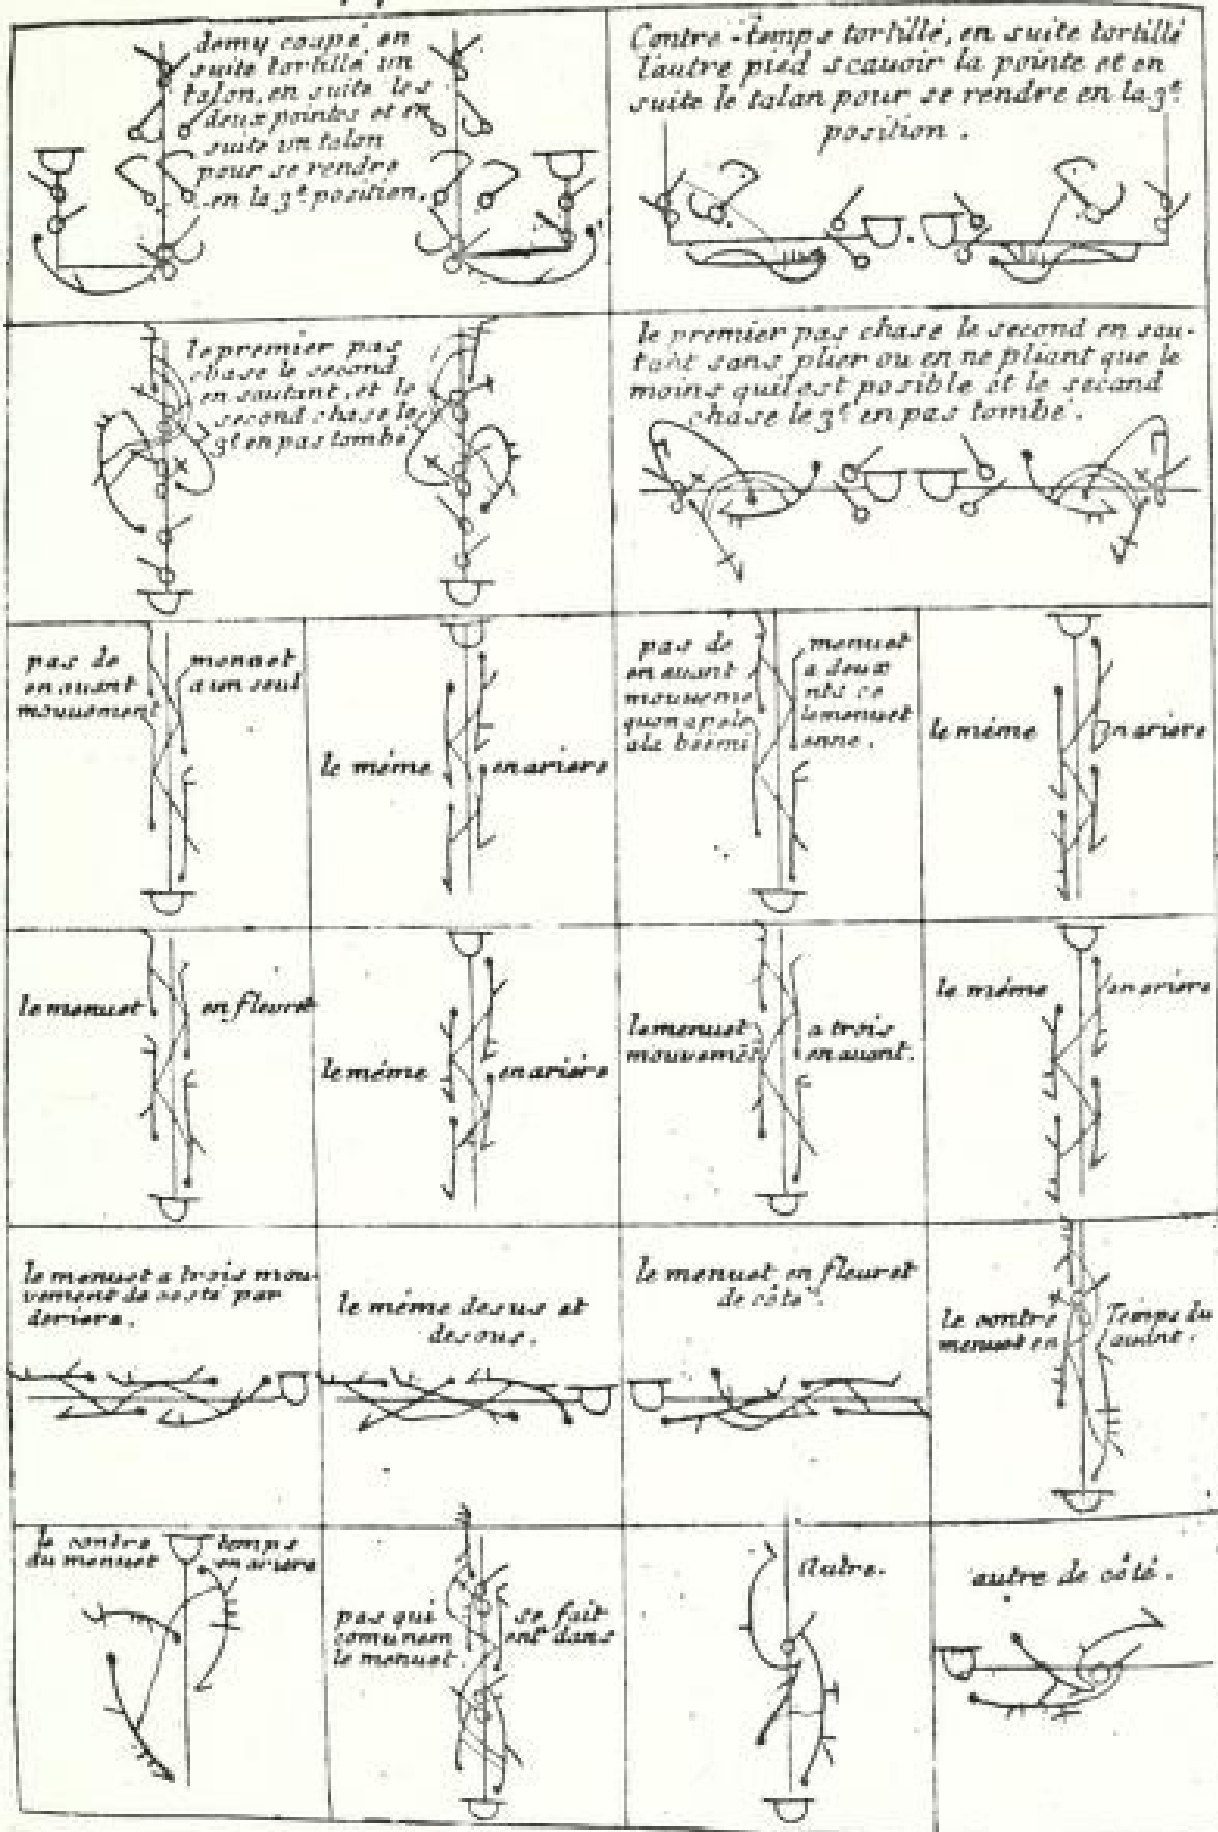 demy coupé, en
suite tortillé un
talon, en suite les
deux pointes et en
suite un talon
pour se rendre
en la 3.e position.
Contre-temps tortillé, en suite tortillé
l'autre pied scauoir la pointe et en
suite le talan pour se rendre en la 3.e
position.
le premier pas
chase le second
en sautant, et le
second chase le
3.e en pas tombé
le premier pas chase le second en sau-
tant sans plier ou en ne pliant que le
moins quil est posible et le second
chase le 3.e en pas tombé.
pas de menuet
en auant a un seul
mouuement
le méme en ariere
pas de menuet
en auant a deux
mouueme nts ce
quon apele le menuet
a la boemi enne.
le méme en ariere
le menuet en fleuret
le méme en ariere
le menuet a trois
mouuemēs en auant.
le méme en ariere
le menuet a trois mou-
vement de costé par
deriere.
le méme desus et
desous.
le menuet en fleuret
de côté.
le contre Temps du
menuet en auant.
le contre temps
du menuet en ariere
pas qui se fait
comunem ent dans
le menuet.
autre.
autre de côté.